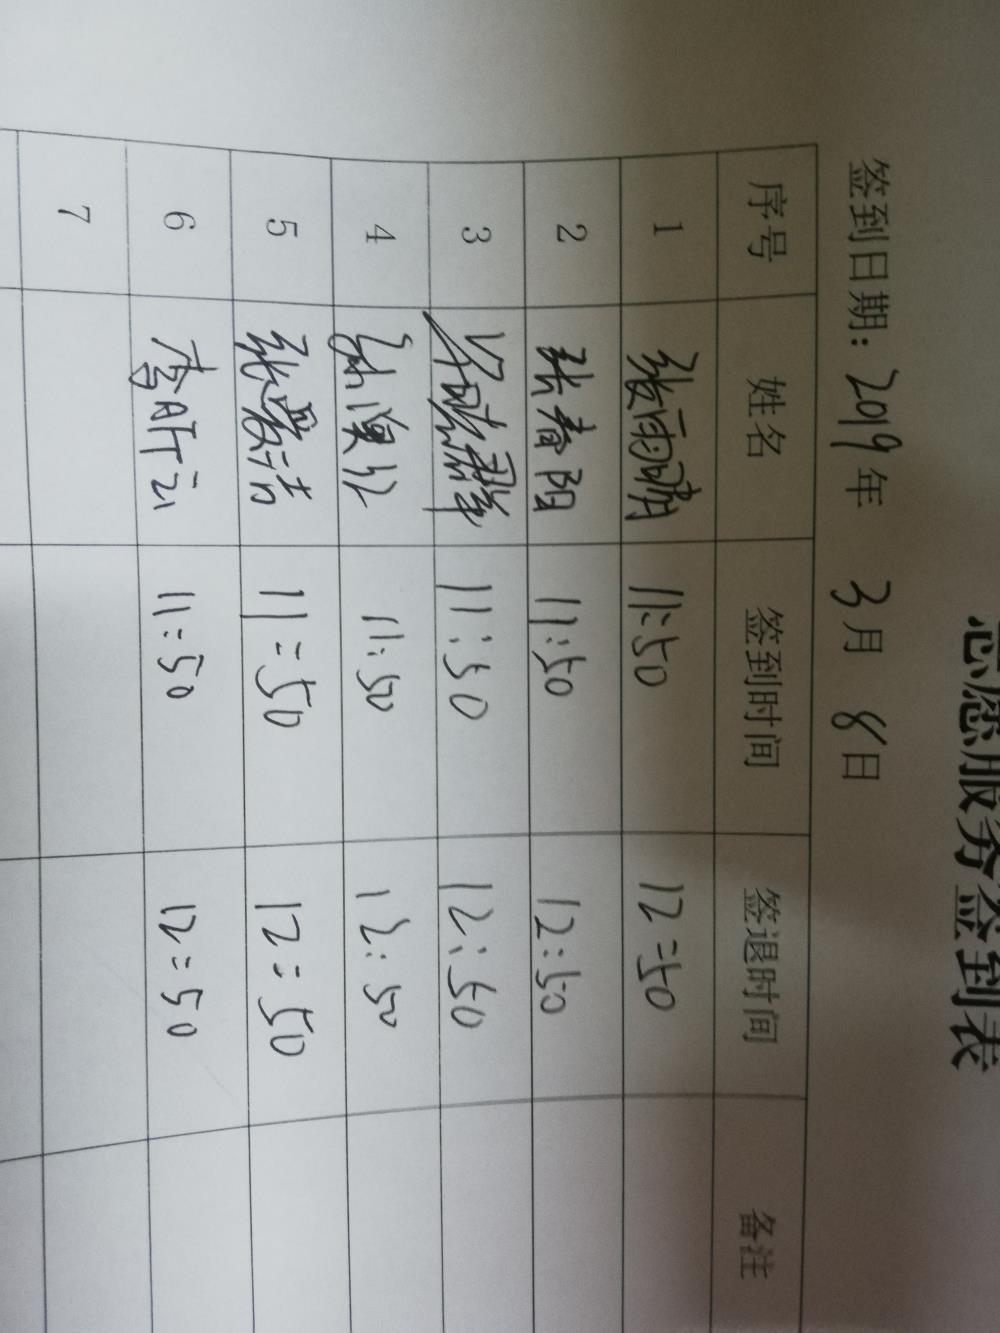 志愿服务签到表
签到日期：2019年 3月 8日
序号 姓名 签到时间 签退时间 备注
1 张雨晴 11:50 12:50
2 张春阳 11:50 12:50
3 11:50 12:50
4 11:50 12:50
5 张爱洁 11:50 12:50
6 11:50 12:50
7